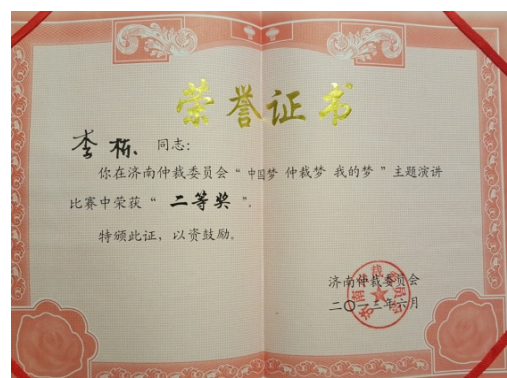 荣誉证书
李栋 同志：
你在济南仲裁委员会“中国梦 仲裁梦 我的梦”主题演讲
比赛中荣获“二等奖”。
特颁此证，以资鼓励。
济南仲裁委员会
二〇一三年六月